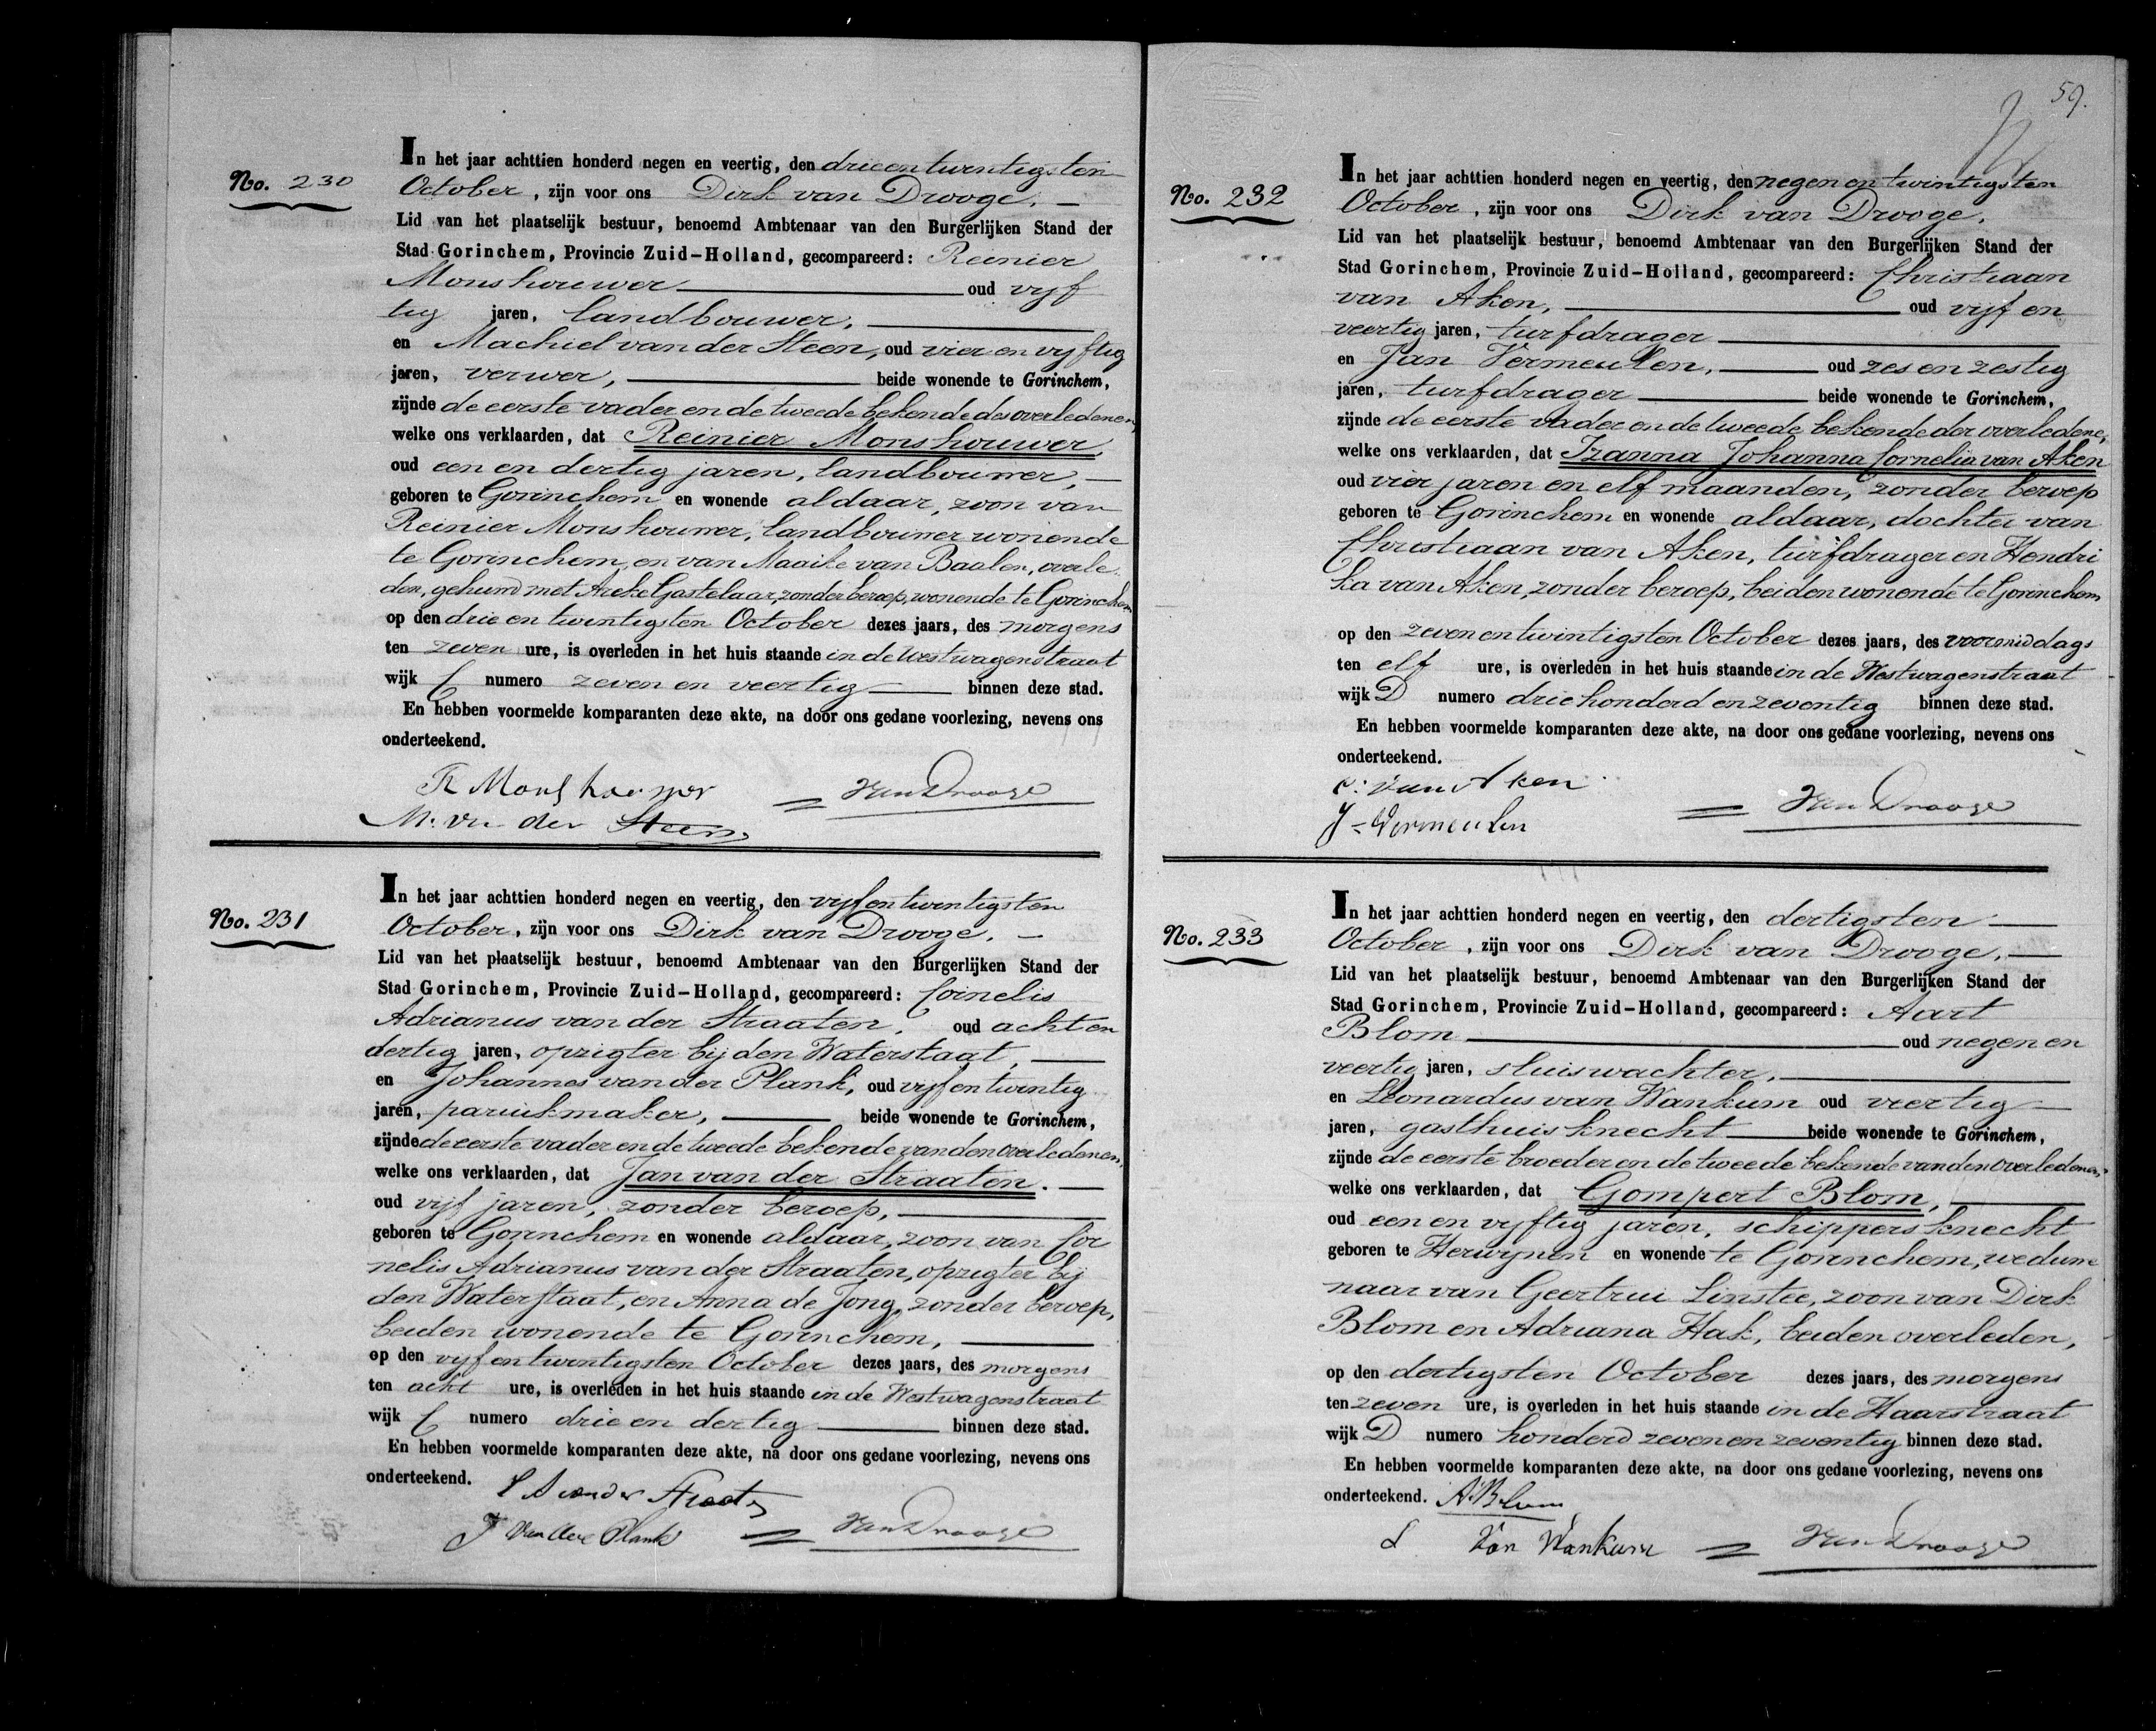 No. 230
In het jaar achttien honderd negen en veertig, den drieentwintigsten
October, zijn voor ons Dirk van Drooge. —
Lid van het plaatselijk bestuur, benoemd Ambtenaar van den Burgerlijken Stand der
Stad Gorinchem, Provincie Zuid-Holland, gecompareerd: Reinier
Monshouwer — oud vijf
tig jaren, landbouwer, —
en Machiel van der Steen, oud vier en vyftig
jaren, verwer, — beide wonende te Gorinchem,
zijnde de eerste vader en de tweede bekende des overledenen,
welke ons verklaarden, dat Reinier Monshouwer
oud een en dertig jaren, landbouwer, —
geboren te Gorinchem en wonende aldaar, zoon van
Reinier Monshouwer, landbouwer wonende
te Gorinchem, en van Maaike van Baalen, overle
den, gehuwd met Areke Gastelaar, zonder beroep, wonende te Gorinchem
op den drie en twintigsten October dezes jaars, des morgens
ten zeven ure, is overleden in het huis staande in de Westwagenstraat
wijk C numero zeven en veertig — binnen deze stad.
En hebben voormelde komparanten deze akte, na door ons gedane voorlezing, nevens ons
onderteekend.
R Monshouwer
M. vn der Steen
Van Drooge
No. 231
In het jaar achttien honderd negen en veertig, den vijfentwintigsten
October, zijn voor ons Dirk van Drooge. —
Lid van het plaatselijk bestuur, benoemd Ambtenaar van den Burgerlijken Stand der
Stad Gorinchem, Provincie Zuid-Holland, gecompareerd: Cornelis
Adrianus van der Straaten, oud acht en
dertig jaren, opzigter bij den Waterstaat, —
en Johannes van der Plank, oud vijf en twintig
jaren, paruikmaker, — beide wonende te Gorinchem,
zijnde de eerste vader en de tweede bekende van den overledenen,
welke ons verklaarden, dat Jan van der Straaten. —
oud vijf jaren, zonder beroep, —
geboren te Gorinchem en wonende aldaar, zoon van Cor
nelis Adrianus van der Straaten, opzigter bij
den Waterstaat, en Anna de Jong, zonder beroep,
beiden wonende te Gorinchem, —
op den vijf en twintigsten October dezes jaars, des morgens
ten acht ure, is overleden in het huis staande in de Westwagenstraat
wijk C numero drie en dertig — binnen deze stad.
En hebben voormelde komparanten deze akte, na door ons gedane voorlezing, nevens ons
onderteekend.
C A van der Straaten
J van der Plank
Van Drooge
59.
No. 232
In het jaar achttien honderd negen en veertig, den negen en twintigsten
October, zijn voor ons Dirk van Drooge.
Lid van het plaatselijk bestuur, benoemd Ambtenaar van den Burgerlijken Stand der
Stad Gorinchem, Provincie Zuid-Holland, gecompareerd: Christiaan
van Aken, — oud vijf en
veertig jaren, turfdrager —
en Jan Vermeulen, — oud zes en zestig
jaren, turfdrager — beide wonende te Gorinchem,
zijnde de eerste vader en de tweede bekende der overledene,
welke ons verklaarden, dat Izanna Johanna Cornelia van Aken
oud vier jaren en elf maanden, zonder beroep
geboren te Gorinchem en wonende aldaar, dochter van
Christiaan van Aken, turfdrager en Hendri
ka van Aken, zonder beroep, beiden wonende te Gorinchem
op den zeven en twintigsten October dezes jaars, des voormiddags
ten elf ure, is overleden in het huis staande in de Westwagenstraat
wijk D numero driehonderd en zeventig binnen deze stad.
En hebben voormelde komparanten deze akte, na door ons gedane voorlezing, nevens ons
onderteekend.
C: van Aken
J = Vermeulen
Van Drooge
No. 233
In het jaar achttien honderd negen en veertig, den dertigsten —
October, zijn voor ons Dirk van Drooge. —
Lid van het plaatselijk bestuur, benoemd Ambtenaar van den Burgerlijken Stand der
Stad Gorinchem, Provincie Zuid-Holland, gecompareerd: Aart
Blom — oud negen en
veertig jaren, sluiswachter, —
en Leonardus van Wankum oud veertig —
jaren, gasthuisknecht — beide wonende te Gorinchem,
zijnde de eerste broeder en de tweede bekende van den overledenen,
welke ons verklaarden, dat Gompert Blom, —
oud een en vyftig jaren, schippersknecht
geboren te Herwynen en wonende te Gorinchem, weduwe
naar van Geertrui Linstee, zoon van Dirk
Blom en Adriana Hak, beiden overleden,
op den dertigsten October dezes jaars, des morgens
ten zeven ure, is overleden in het huis staande in de Haarstraat
wijk D numero honderd zeven en zeventig binnen deze stad.
En hebben voormelde komparanten deze akte, na door ons gedane voorlezing, nevens ons
onderteekend.
A Blom
L Van Wankum
Van Drooge